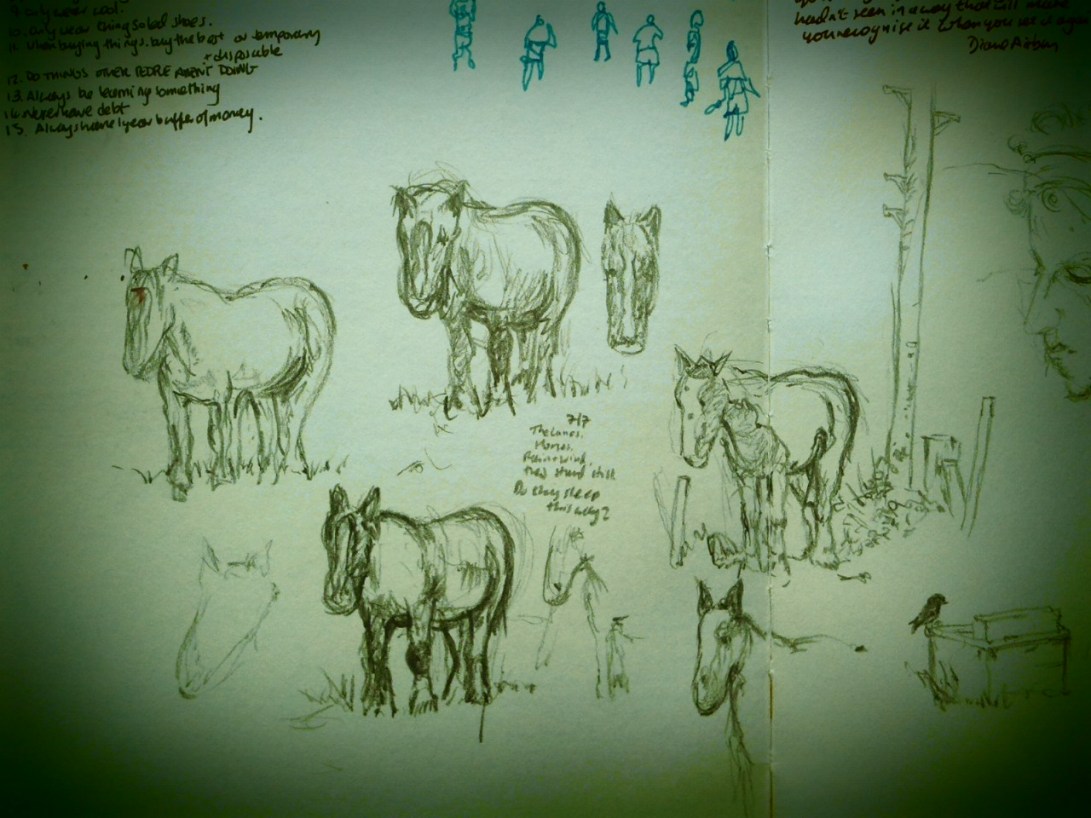 9. Only wear wool.
10. Only wear thing soled shoes.
11. When buying things. buy the best or temporary
+ disposable
12. DO THINGS OTHER PEOPLE AREN'T DOING
13. Always be learning something
14. Never have debt
15. Always have 1 year buffer of money.
hadn't seen in a way that will make
you recognise it when you see it again
7/7
The Lanes.
Horses.
Rain + wind.
They stand still
Do they sleep
this way?